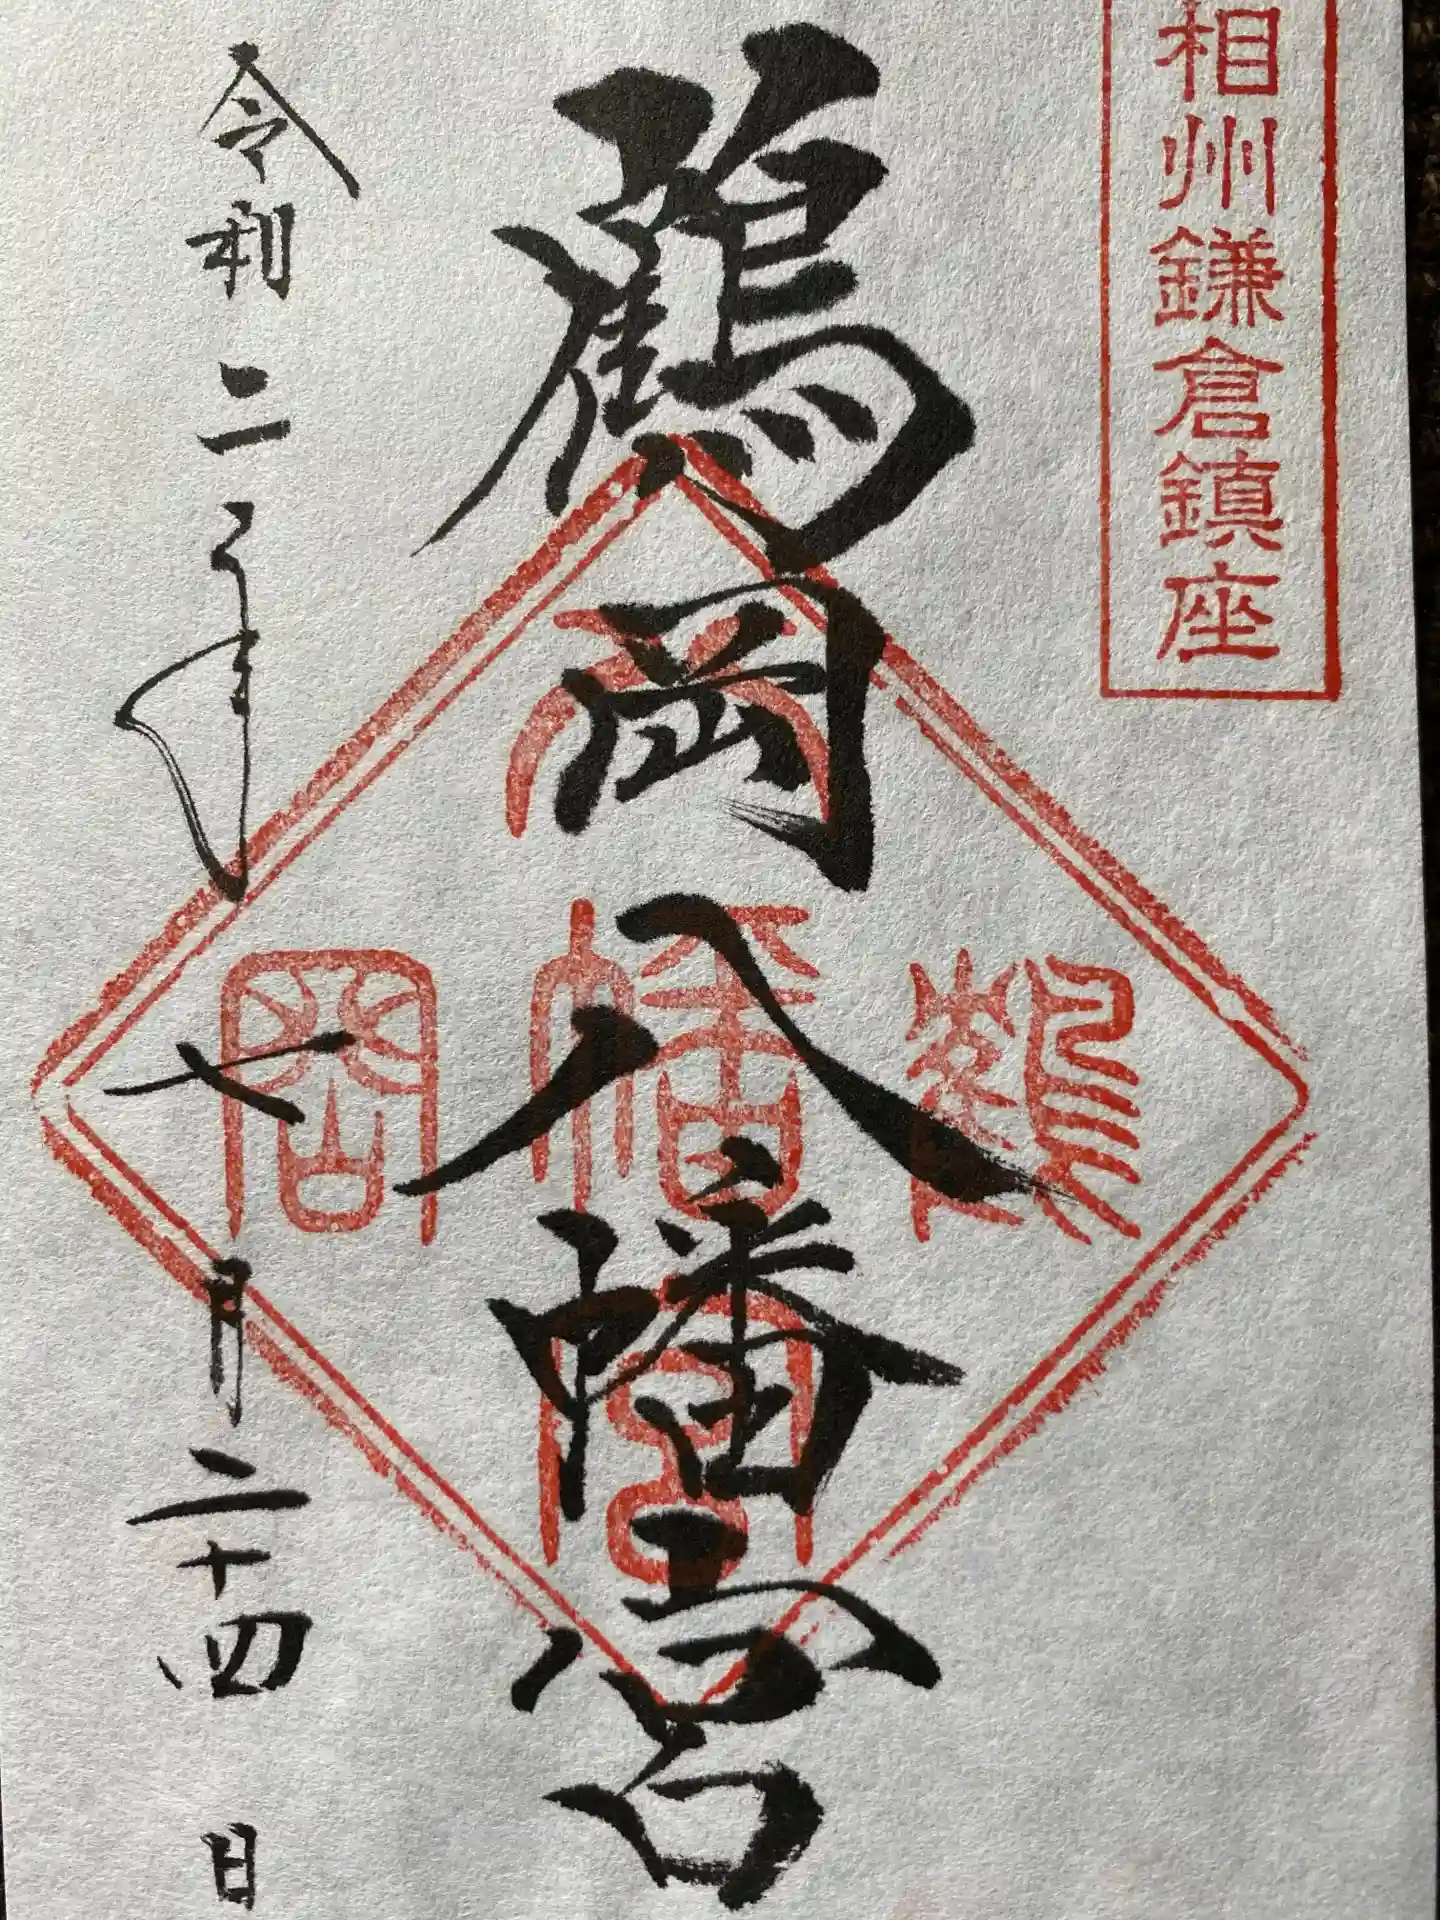 相州鎌倉鎮座
鶴岡八幡宮
鶴岡
八幡宮
令和二年七月二十四日